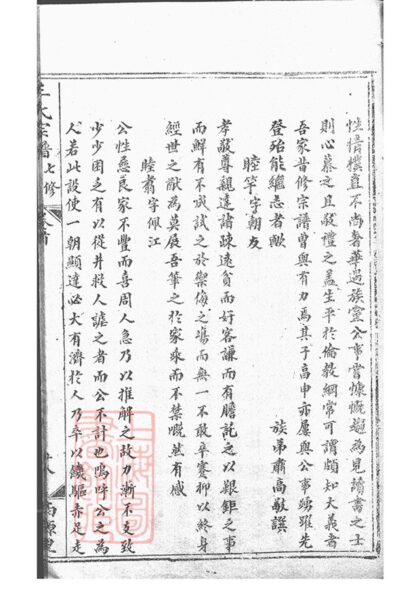 性情樸直不尚奢華過族壼公事嘗慷慨趨為見讀書之士
則心慕之且敬禮之蓋生平於倫教綱常可謂頗知大義者
吾家昔修宗譜曾與有力焉其子高申亦屢與公事繩踵先
登殆能繼志者歟
族弟肅高敬譔
睦竿字朝友
孝敬尊親達諸疎遠貧而好客謙而有膽託之以艱鉅之事
而鮮有不成試之於禦侮之場而無一不敢卒蹇抑以終身
經世之猷為莫展吾筆之於家乘而不禁嘅然有感
睦翥字佩江
公性慈良家不豐而喜周人急乃以推解之故力漸不支致
少少困乏有以從井救人謔之者而公不計也嗚呼公之為
人若此設使一朝顯達必大有濟於人乃卒以鐵驅赤足走
王氏宗譜
七修
卷首